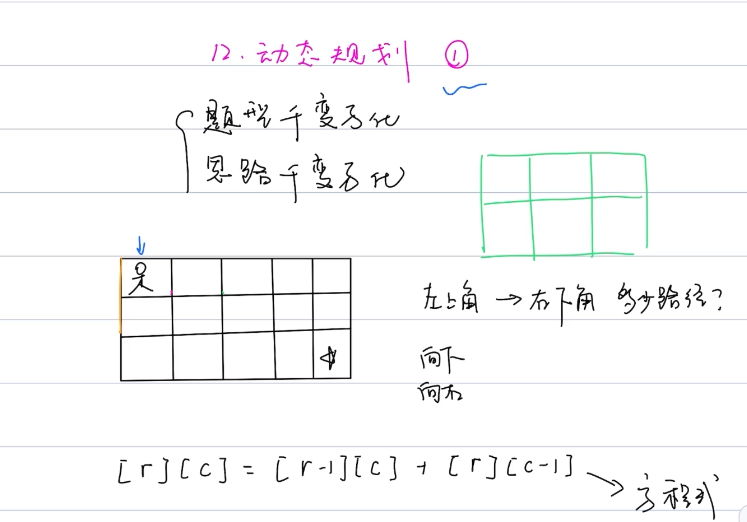 12.动态规划 ①
题型千变万化
思路千变万化
左上角 → 右下角 多少路径?
向下
向右
[r][c] = [r-1][c] + [r][c-1] → 方程式